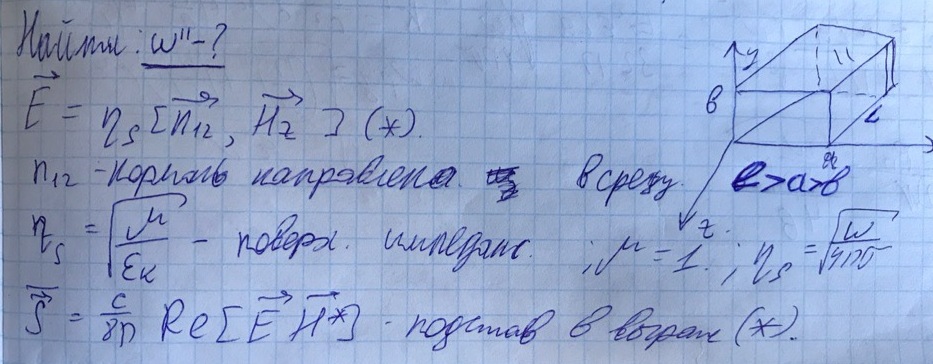 Найти: ω"-?
E⃗ = η_s [n⃗₁₂, H⃗_z] (*).
n₁₂ - нормаль направлена в среду.
η_s = √(μ/ε_к) - поверх. импеданс. ; μ = 1. ; η_s = √(ω/4πσ)
S⃗ = c/8π Re[E⃗ H⃗*] - подстав в выраж (*).
y
в
L
a
z
L>a>в